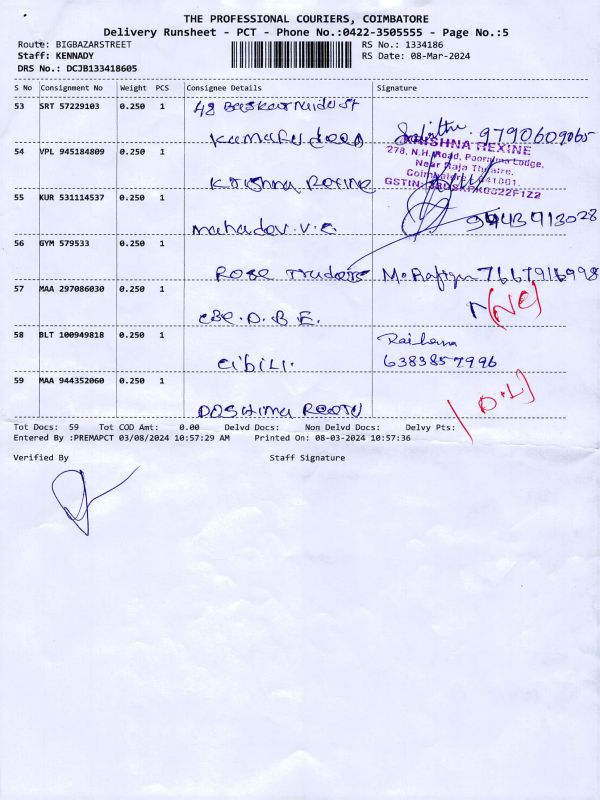 THE PROFESSIONAL COURIERS, COIMBATORE
Delivery Runsheet - PCT - Phone No.:0422-3505555 - Page No.:5
Route: BIGBAZARSTREET RS No.: 1334186
Staff: KENNADY RS Date: 08-Mar-2024
DRS No.: DCJB133418605
S No Consignment No Weight PCS Consignee Details Signature
53 SRT 57229103 0.250 1
9790609065
KRISHNA REXINE
54 VPL 945184809 0.250 1
278, N.H. Road, Pooraima Lodge,
Near Raja Theatre,
Krishna Rexine
Coimbatore
55 KUR 531114537 0.250 1
mahadev.v.c 9443913028
56 GYM 579533 0.250 1
Rose Traders 7667916998
57 MAA 297086030 0.250 1
(NC)
CBE.D.B.E.
58 BLT 100949818 0.250 1
cibili. 6383857996
59 MAA 944352060 0.250 1
D.L
Tot Docs: 59 Tot COD Amt: 0.00 Delvd Docs: Non Delvd Docs: Delvy Pts:
Entered By :PREMAPCT 03/08/2024 10:57:29 AM Printed On: 08-03-2024 10:57:36
Verified By Staff Signature